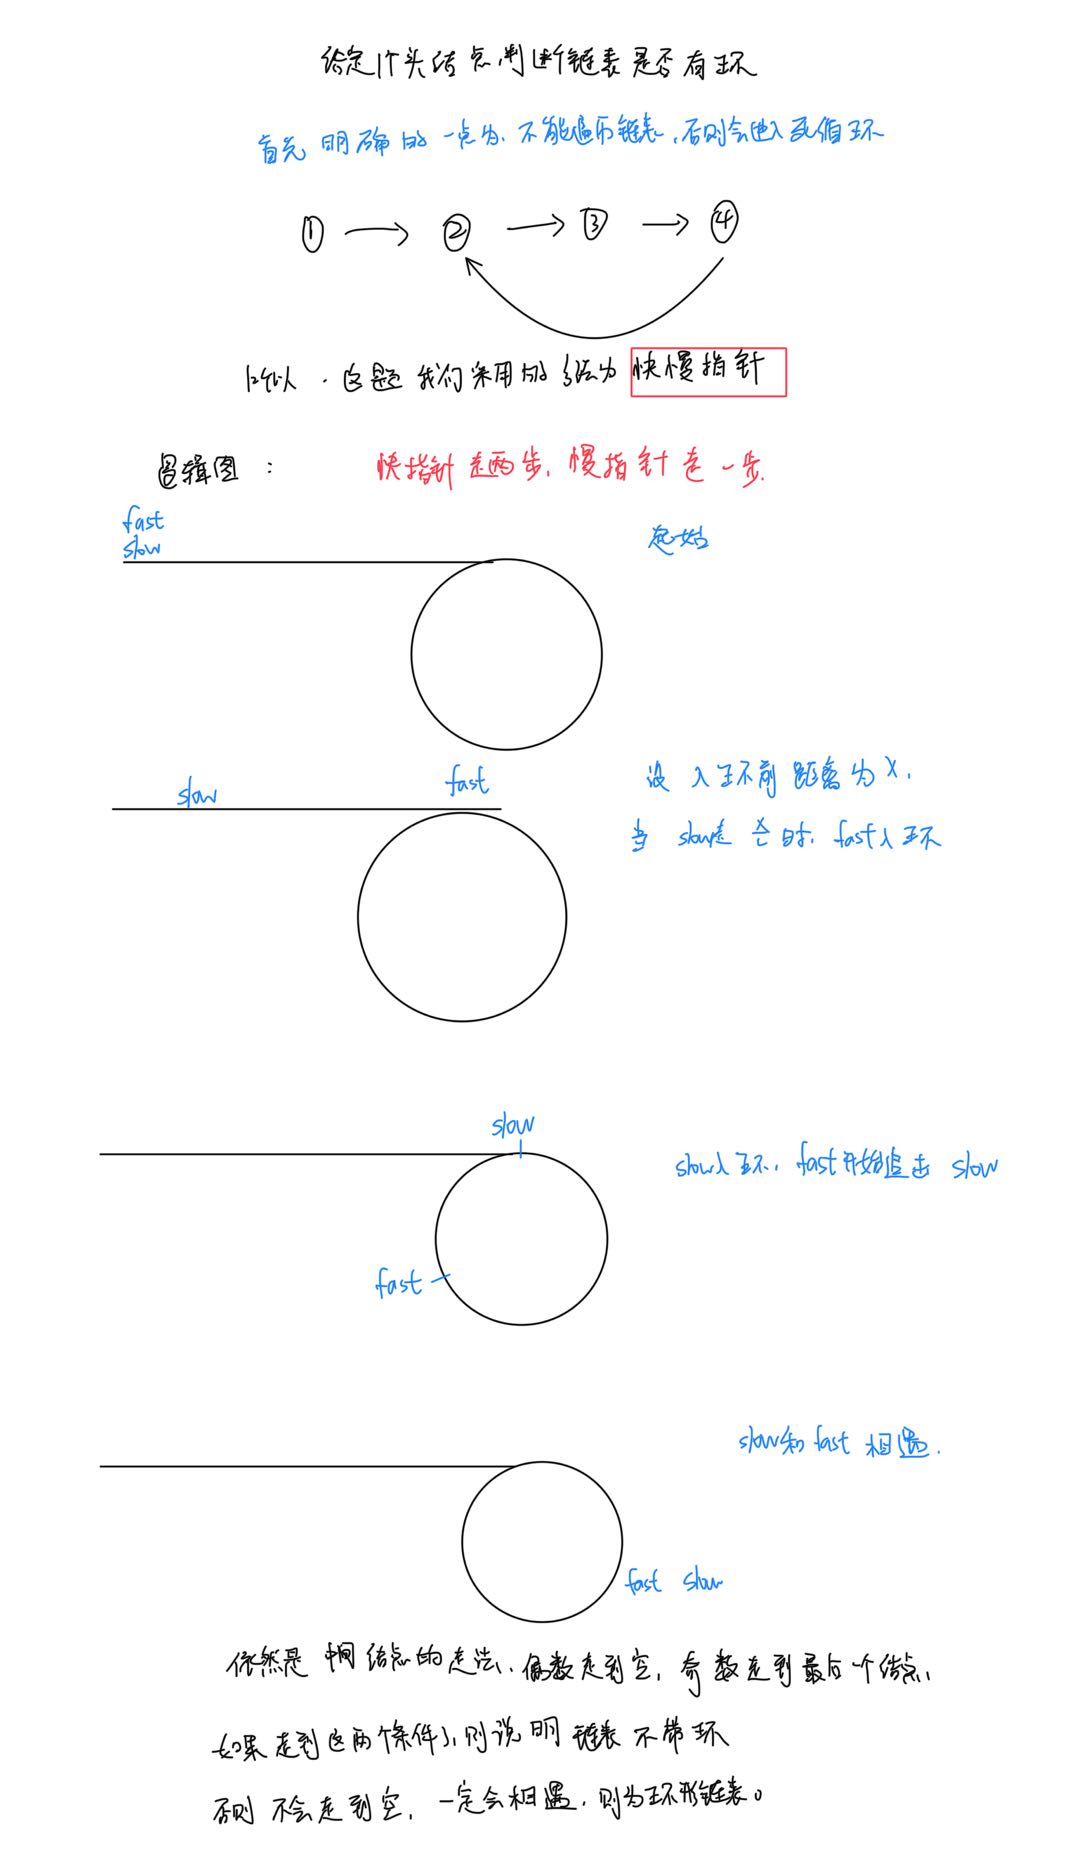 给定1个头结点,判断链表是否有环
首先 明确的一点为、不能遍历链表,否则会进入死循环
① ② ③ ④
所以,这题 我们采用的方法为 快慢指针
逻辑图:
快指针走两步,慢指针走一步.
fast
slow
起始
slow fast
设 入环前 距离为X,
当 slow走 X/2时, fast入环
slow
slow入环, fast开始追击 slow
fast
slow和fast 相遇.
fast slow
依然是 中间结点的走法、偶数走到空, 奇数走到最后一个结点,
如果走到这两个条件了,则说明 链表 不带环
否则 不会走到空, 一定会相遇, 则为环形链表。